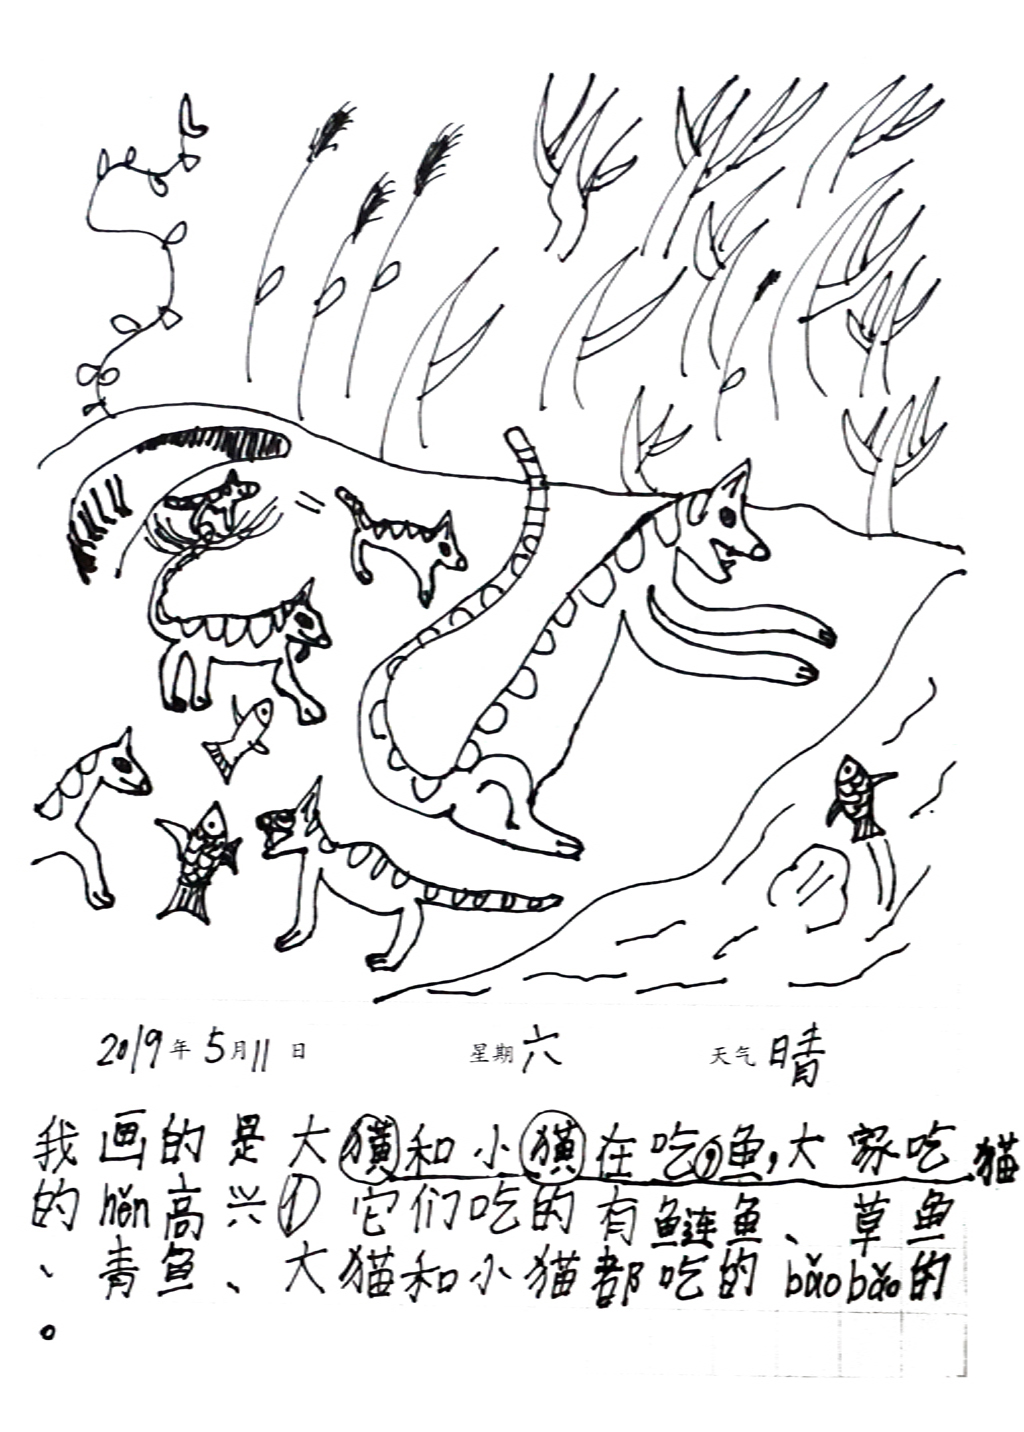 2019年5月11日 星期六 天气晴
我画的是大獚和小獚在吃，鱼，大家吃 猫
的hěn高兴，它们吃的有鲢鱼、草鱼
、青鱼、大猫和小猫都吃的bǎobǎo的
。